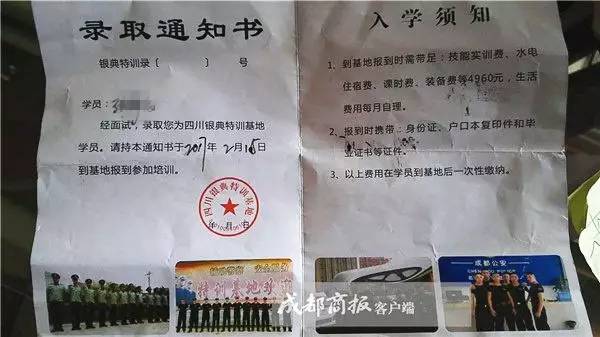 录取通知书
银典特训录〔 〕 号
学员：
经面试，录取您为四川银典特训基地
学员。请持本通知书于2017年2月15日
到基地报到参加培训。
四川银典特训基地
年 月 日
特训基地
入学须知
1、到基地报到时需带足：技能实训费、水电
住宿费、课时费、装备费等4960元，生活
费用每月自理。
2、报到时携带：身份证、户口本复印件和毕
业证书等证件。
3、以上费用在学员到基地后一次性缴纳。
成都公安
成都商报客户端